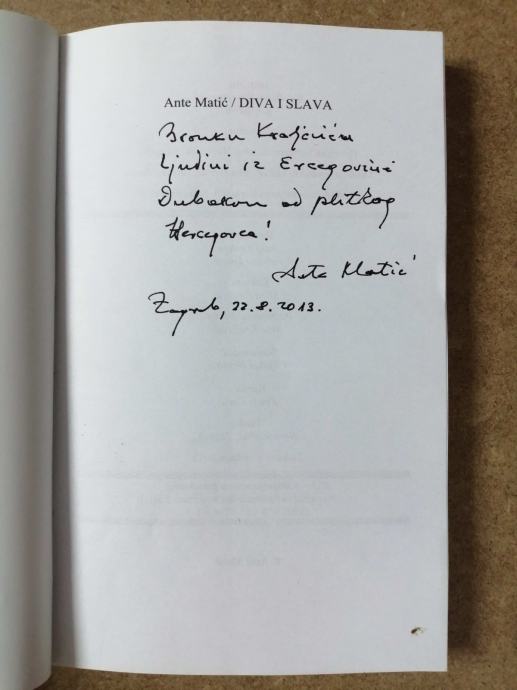 Ante Matić / DIVA I SLAVA
Branku
Ljudini iz Ercegovine
Dubokom od plitkog
Hercegovca!
Ante Matić
Zagreb, 22.8.2013.